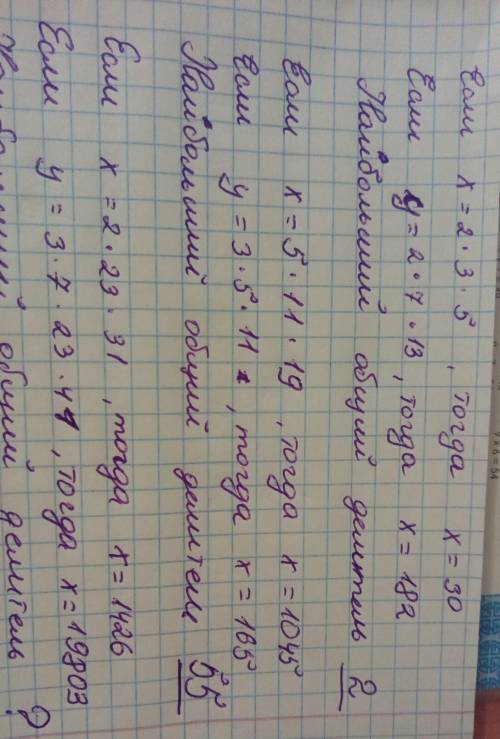 Если x = 2 · 3 · 5 , тогда x = 30
Если y = 2 · 7 · 13 , тогда x = 182
Наибольший общий делитель 2
Если x = 5 · 11 · 19 , тогда x = 1045
Если y = 3 · 5 · 11 , тогда x = 165
Наибольший общий делитель 55
Если x = 2 · 23 · 31 , тогда x = 1426
Если y = 3 · 7 · 23 · 41 , тогда x = 19803
Наибольший общий делитель ?